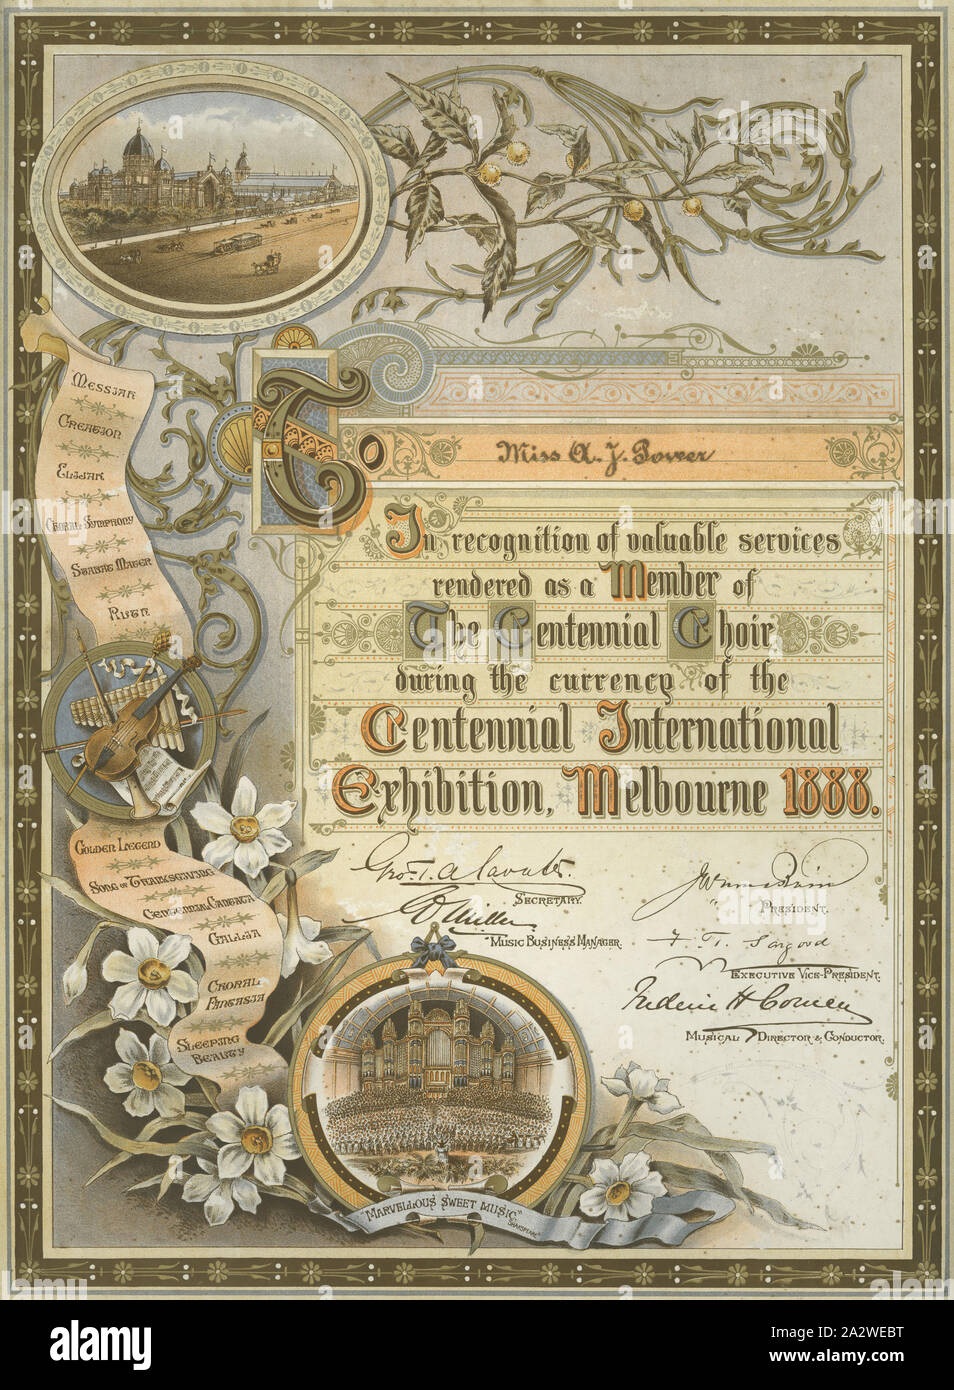 Messiah
Creation
Elijah
Choral Symphony
Stabat Mater
Ruth
Golden Legend
Song of Thanksgiving
Centennial Cantata
Gallia
Choral
Fantasia
Sleeping
Beauty
To
Miss A. J. Power
In recognition of valuable services
rendered as a Member of
The Centennial Choir
during the currency of the
Centennial International
Exhibition, Melbourne 1888.
Secretary.
President.
Music Business Manager.
F. T. Sargood
Executive Vice-President.
Frederic H Cowen
Musical Director & Conductor.
"Marvellous Sweet Music"
alamy
Image ID: 2A2WEBT
www.alamy.com